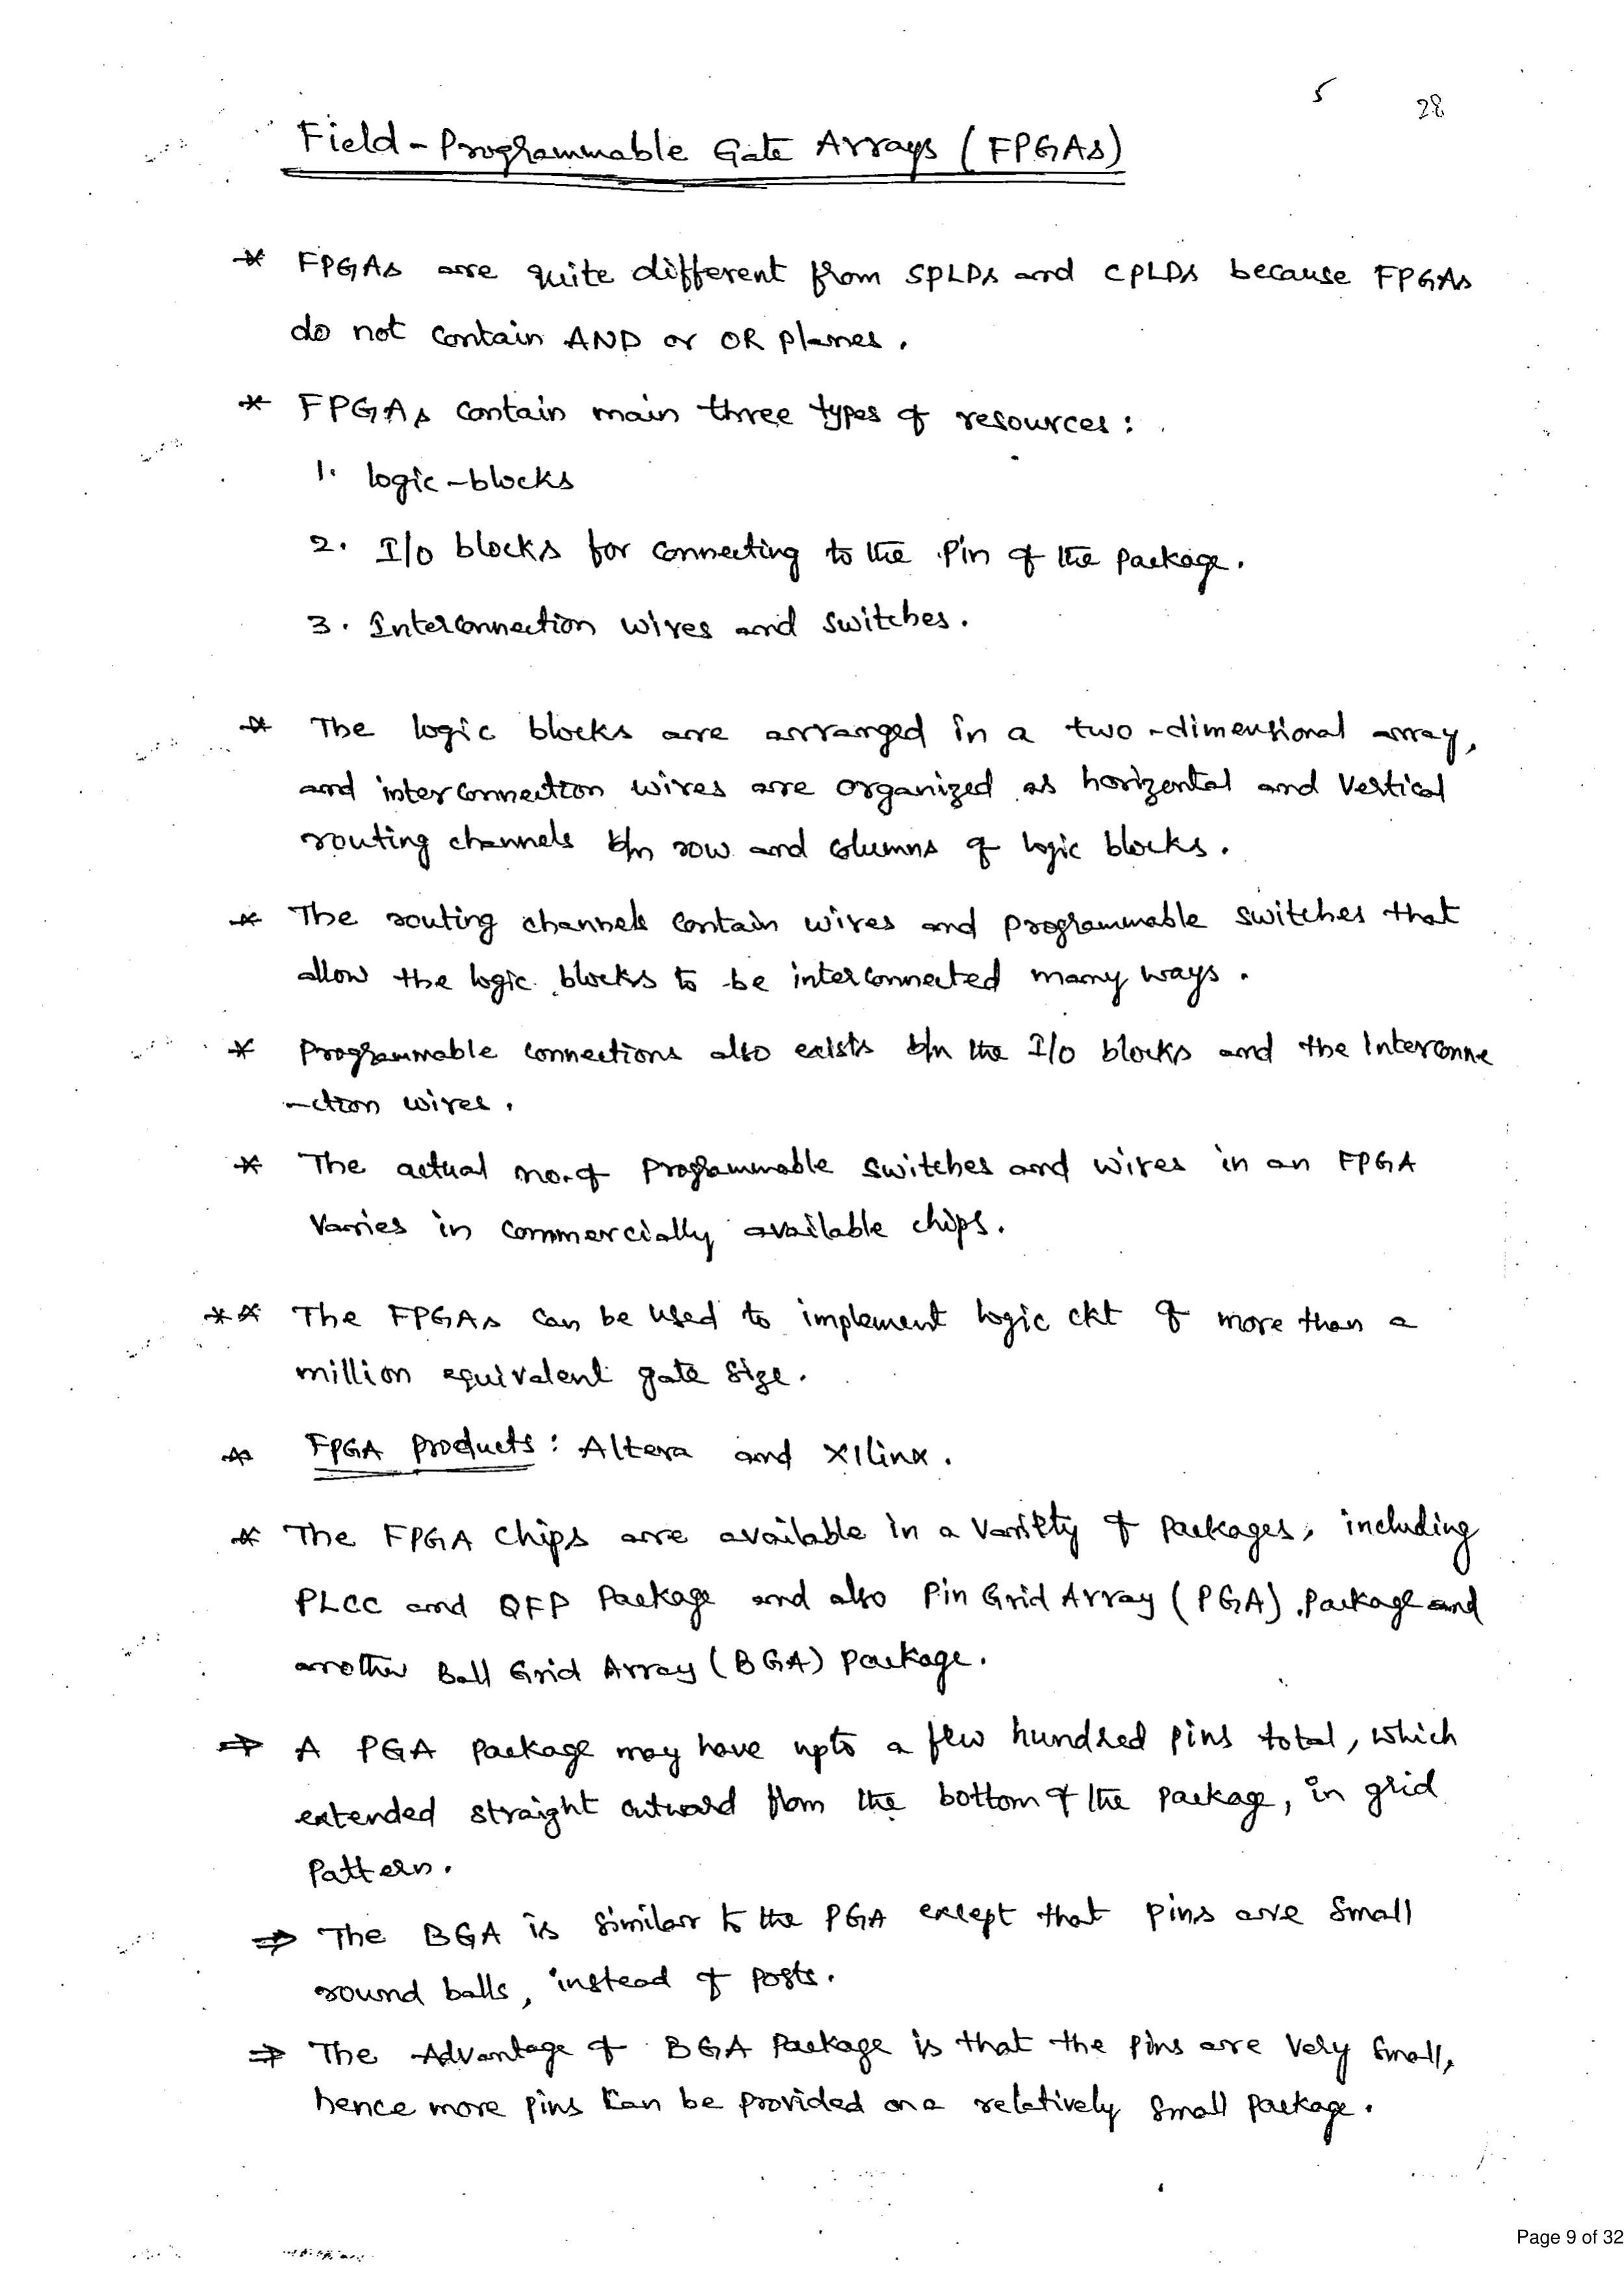 5 28
Field-Programmable Gate Arrays (FPGAs)
* FPGAs are quite different from SPLDs and CPLDs because FPGAs
do not contain AND or OR planes.
* FPGAs contain main three types of resources:
1. logic-blocks
2. I/o blocks for connecting to the Pin of the package.
3. Interconnection wires and switches.
* The logic blocks are arranged in a two-dimensional array,
and interconnection wires are organized as horizental and Vertical
routing channels b/n row and columns of logic blocks.
* The routing channels contain wires and programmable switches that
allow the logic blocks to be interconnected many ways.
* Programmable connections also exists b/n the I/o blocks and the Interconne
-ction wires.
* The actual no. of Programmable switches and wires in an FPGA
Varies in commercially available chips.
** The FPGAs can be used to implement logic ckt of more than a
million equivalent gate size.
* FPGA products: Altera and Xilinx.
* The FPGA Chips are available in a Variety of Packages, including
PLCC and QFP Package and also Pin Grid Array (PGA) Package and
another Ball Grid Array (BGA) package.
⇒ A PGA Package may have upto a few hundred pins total, which
extended straight outward from the bottom of the package, in grid
Pattern.
⇒ The BGA is similar to the PGA except that pins are small
round balls, instead of posts.
⇒ The Advantage of BGA Package is that the pins are Very Small,
hence more pins can be provided on a relatively small package.
Page 9 of 32